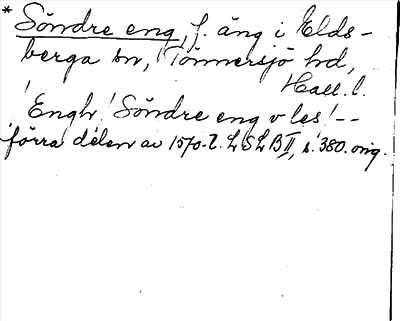 * Söndre eng, f. äng i Elds-
berga sn, Tönnersjö hd,
Hall. l.
'Engh' Söndre eng v les' --
förra delen av 1570-t. LSLB II, s. 380. orig.